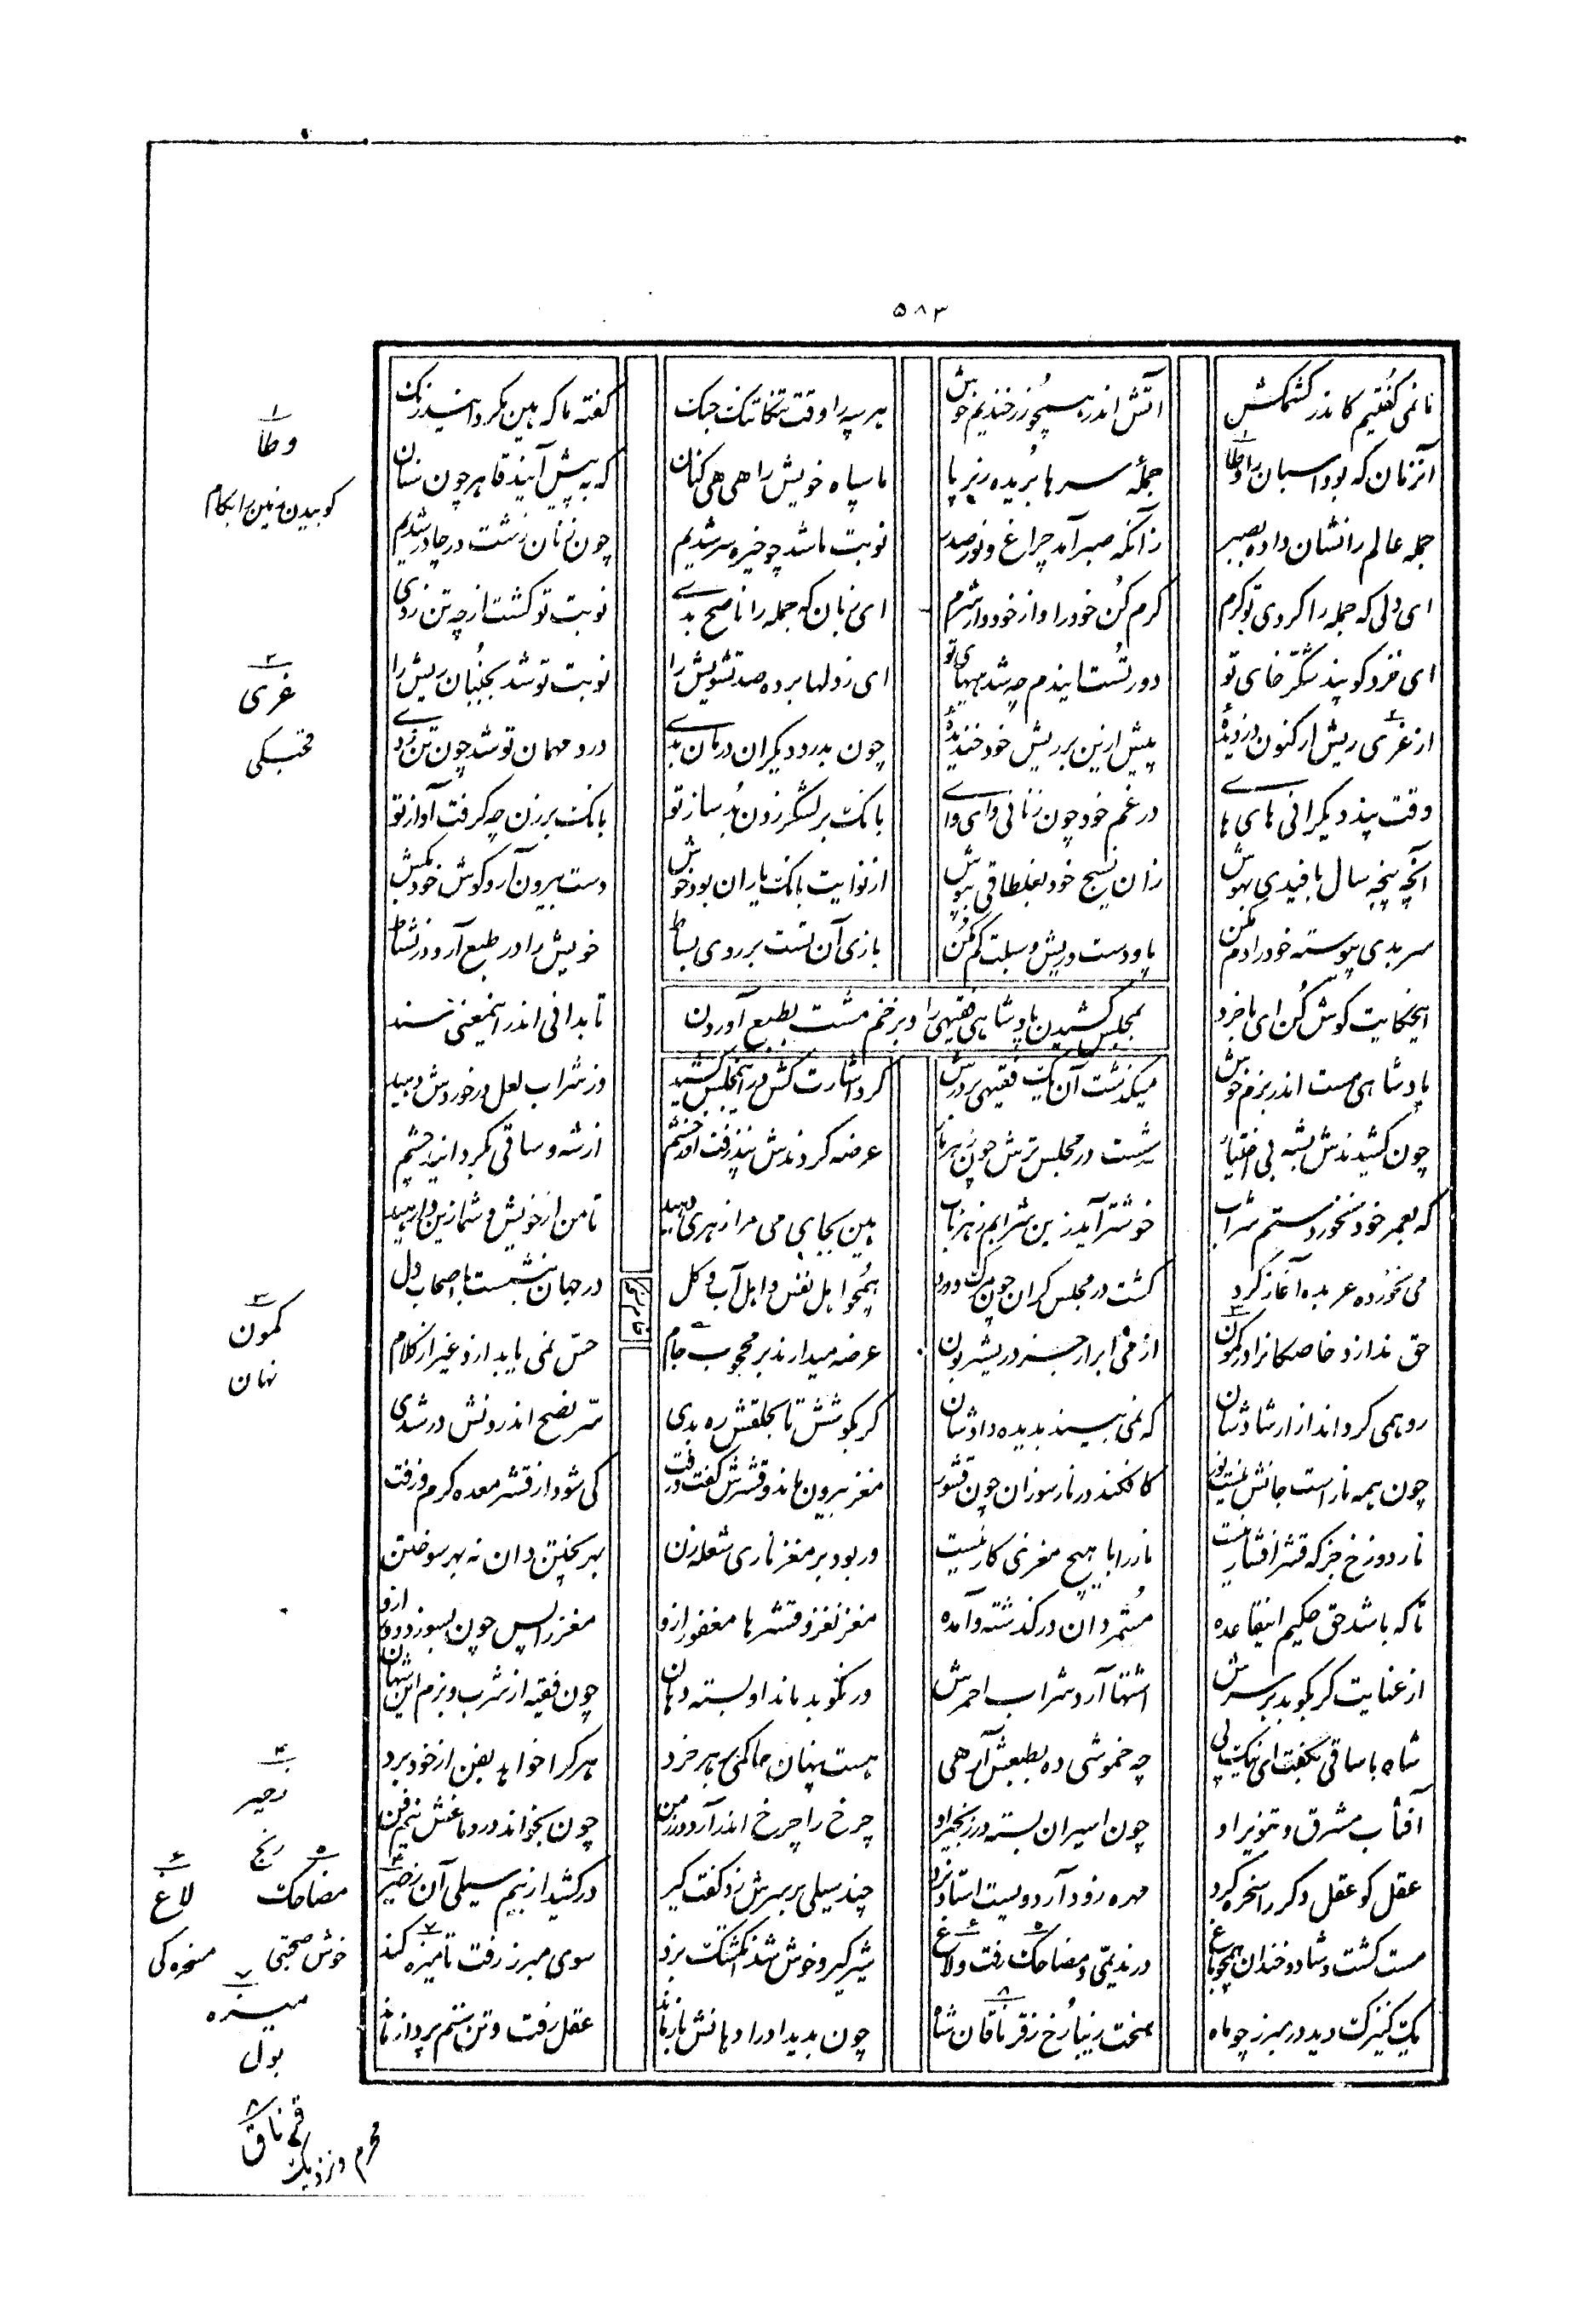 ۵۸۳
ما نمی گفتیم کاندر کشمکش آتش اندر همچو زر خندیم خوش هر سپه را وقت تنگاتنگ جنگ گفته ما که هین مگردانید رنگ
آنزمان که بود اسبان را وطا جملهٔ سرها بریده زیر پا ما سپاه خویش را هی هی کنان که به پیش آیید قاهر چون سنان
جمله عالم را نشان داده بصبر زانکه صبر آمد چراغ و نور صدر نوبت ما شد چو خیره سر شدیم چون زنان زشت در چادر شدیم
ای دلی که جمله را کردی تو گرم گرم کن خود را و از خود دار شرم ای زبان که جمله را ناصح بدی نوبت تو گشت از چه تن زدی
ای خرد کو پند شکّر خای تو دور تست ایندم چه شد هیهای تو ای ز دلها برده صد تشویش را نوبت تو شد بجنبان ریش را
از غری ریش ار کنون دزدیدهٔ پیش ازین بر ریش خود خندیدهٔ چون بدرد دیگران درمان بدی درد مهمان تو شد چون تن زدی
وقت پند دیگرانی های های در غم خود چون زنانی وای وای بانگ بر لشکر زدن بُد ساز تو بانگ بر زن چه گرفت آواز تو
آنچه پنجه سال بافیدی بهوش زان نسیج خود بغلطاقی بپوش از نوایت بانگ یاران بود خوش دست بیرون آر و گوش خود بکش
سر بدی پیوسته خود را دم مکن پا و دست و ریش و سبلت گم مکن بازی آن تست بر روی بساط خویش را در طبع آر و در نشاط
بمجلس کشیدن پادشاهی فقیهی را و بزخم مشت بطبع آوردن
اینحکایت گوش کُن ای باخرد تا بدانی اندر اینمعنی سند
پادشاهی مست اندر بزم خوش میگذشت آن یک فقیهی بر درش کرد اشارت کش در این مجلس کشید وز شراب لعل در خوردش دهید
چون کشیدندش بشه بی اختیار شست در مجلس ترش چون زهر مار عرضه کردندش نپذرفت او ز خشم از شه و ساقی بگردانید چشم
که بعمر خود نخوردستم شراب خوشتر آید زین شرابم زهر ناب هین بجای می مرا زهری دهید تا من از خویش و شما زین وارهید
می نخورده عربده آغاز کرد گشت در مجلس گران چون مرگ و درد همچو اهل نفس و اهل آب و گل در جهان بنشسته با اصحاب دل
حق ندارد خاصگانرا در کمون از می ابرار جز در یشربون عرضه میدارند بر محجوب جام حسّ نمی یابد از و غیر از کلام
رو همی گرداند از ارشادشان که نمی بیند بدیده دادشان گر بگوشش تا بحلقش ره بدی سرّ نصح اندرونش در شدی
چون همه نار است جانش نیست نور کافکند در نار سوزان چون قشور مغز بیرون ماند و قشرش گفت رفت کی شود از قشر معده گرم و زفت
نار دوزخ جز که قشر افشار نیست نار را با هیچ مغزی کار نیست ور بود بر مغز ناری شعله زن بهر پختن دان نه بهر سوختن
تا که باشد حق حکیم اینقاعده مستمر دان در گذشته و آمده مغز نغز و قشرها مغفور ازو مغز را پس چون بسوزد دور ازو
از عنایت گر بکوبد بر سرش اشتها آرد شراب احمرش ور نکوبد ماند او بسته دهان چون فقیه از شرب و بزم این شهان
شاه با ساقی بگفت ای نیک پی چه خموشی ده بطبعش آر هی هست پنهان حاکمی بر هر خرد هر کرا خواهد بفن از خود برد
آفتاب مشرق و تنویر او چون اسیران بسته در زنجیر او چرخ را چرخ اندر آرد در زمن چون بخواند در دماغش نیم فن
عقل کو عقل دگر را سخره کرد مهره زو دارد ویست استاد نرد چند سیلی بر سرش زد گفت گیر در کشید از بیم سیلی آن زحیر
مست گشت و شاد و خندان همچو باغ در ندیمی و مضاحک رفت و لاغ شیر گیر و خوش شد انگشتک بزد سوی مبرز رفت تا میزه کند
یک کنیزک دید در مبرز چو ماه سخت زیبا رخ ز قرناقان شاه چون بدید او را دهانش باز ماند عقل رفت و تن ستم پرداز ماند
۱
وطا
کوبیدن زمین را بگام
۲
غری
قحبگی
۳
کمون
نهان
۴
زحیر
رنج
۵
مضاحک
خوش صحبتی
۶
لاغ
مسخره گی
۷
میزه
بول
۸
قرناق
محرم و نزدیک